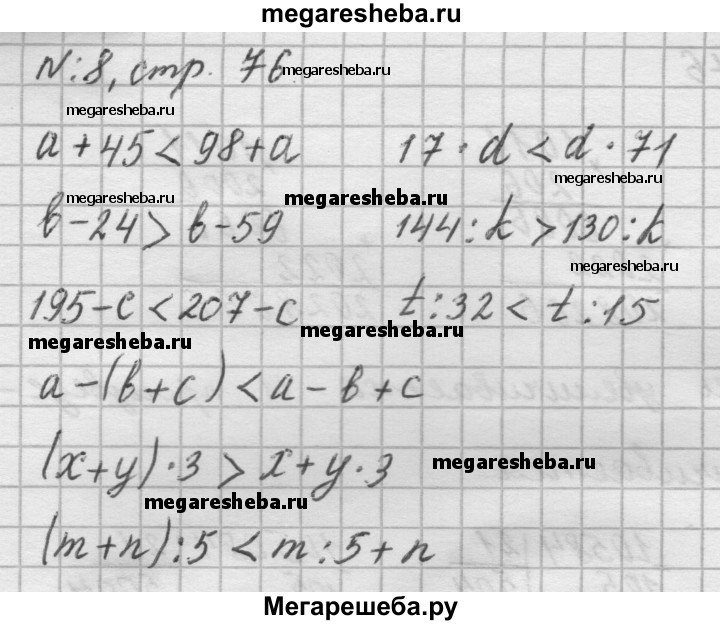 megaresheba.ru
N:8, стр. 76 megaresheba.ru
megaresheba.ru
a + 45 < 98 + a 17 · d < d · 71
megaresheba.ru
megaresheba.ru megaresheba.ru
b - 24 > b - 59 144 : k > 130 : k
megaresheba.ru
195 - c < 207 - c t : 32 < t : 15
megaresheba.ru megaresheba.ru
a - (b + c) < a - b + c
(x + y) · 3 > x + y · 3 megaresheba.ru
megaresheba.ru
(m + n) : 5 < m : 5 + n
Мегарешеба.ру